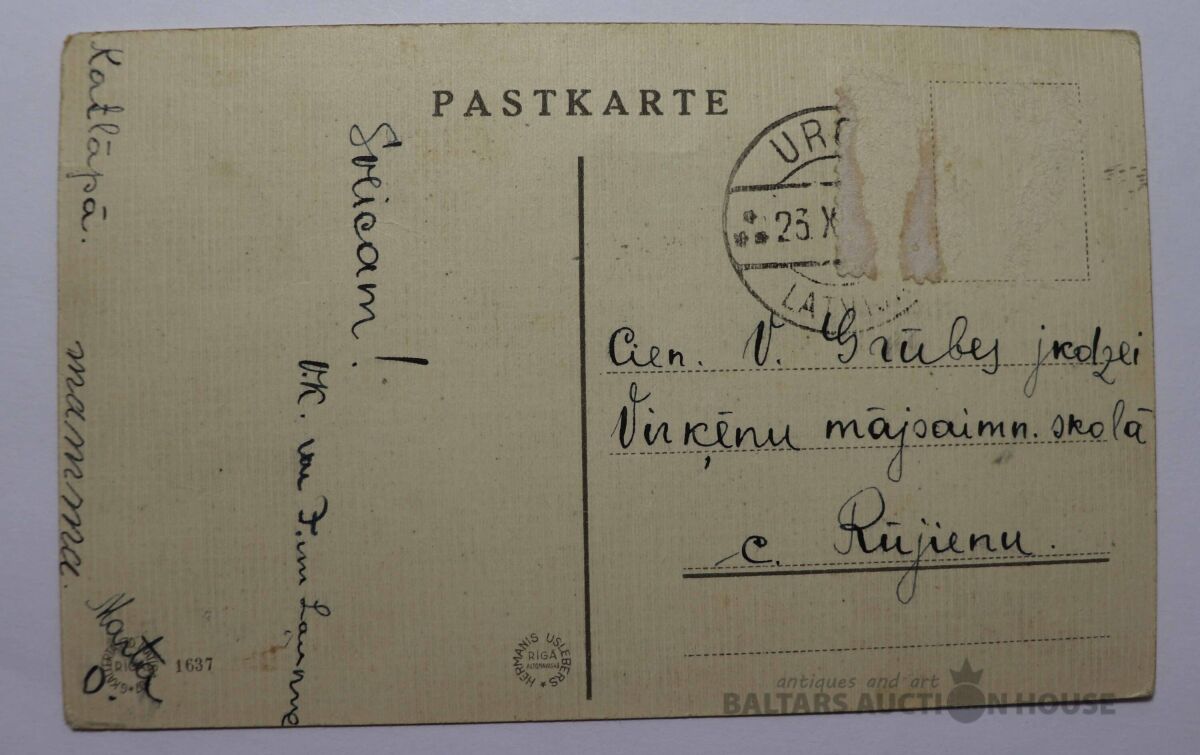 PASTKARTE
Katlāpā.
Sveicam!
mamma.
Marta
O.
1637
HERMANIS USLEBERS
RĪGĀ
URG
23. X
LATVIJA
Cien. V. Grūbes jkdzei
Virķēnu mājsaimn. skolā
c. Rūjienu.
antiques and art
BALTARS AUCTION HOUSE